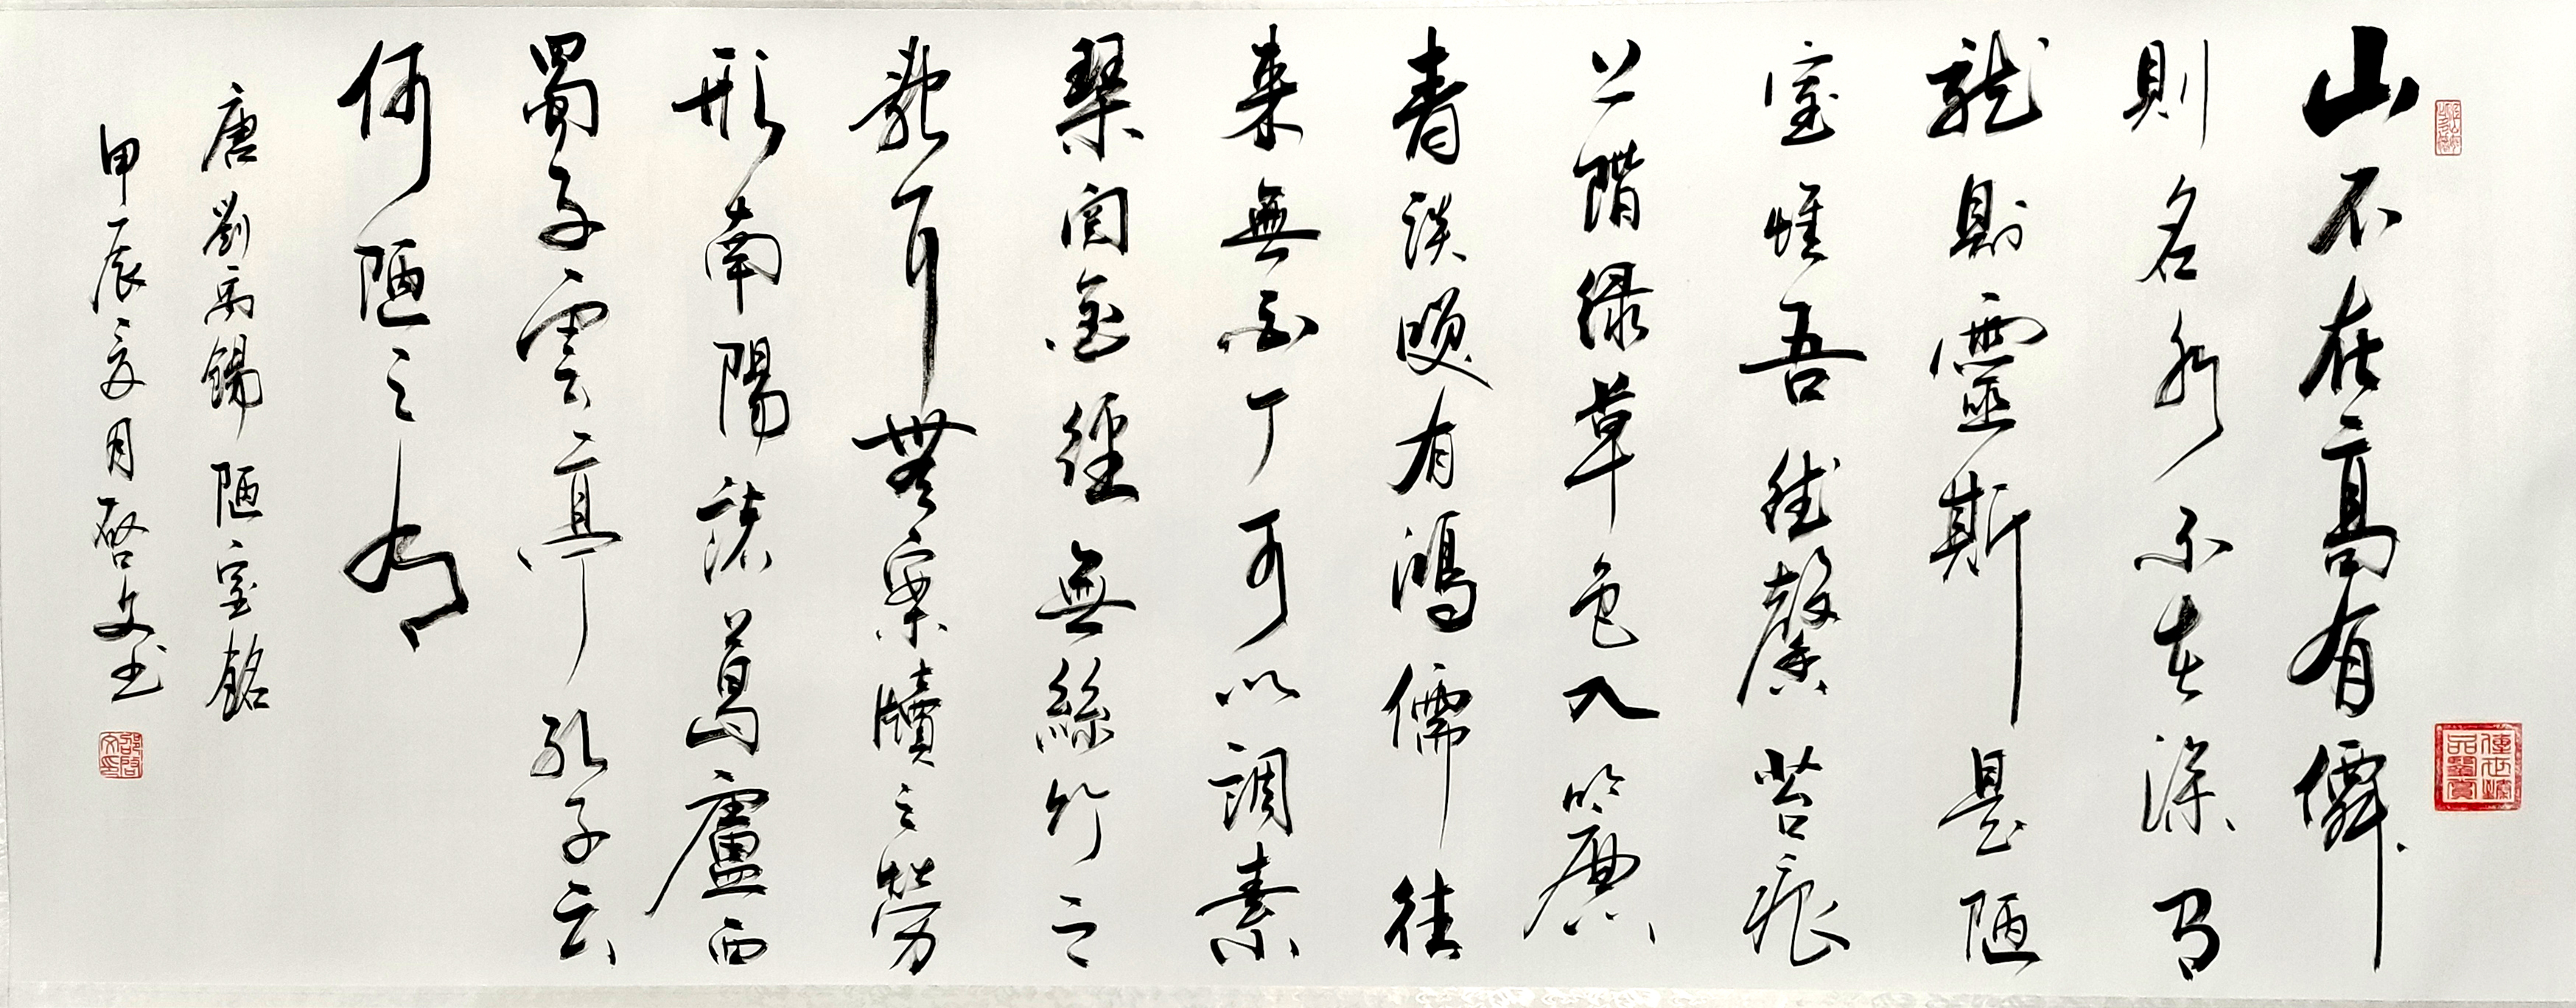 山不在高有僊
則名水不在深有
龍則靈斯是陋
室惟吾德馨苔痕
上階綠草色入簾
青談笑有鴻儒往
来無白丁可以調素
琴閱金經無絲竹之
亂耳無案牘之勞
形南陽諸葛廬西
蜀子雲亭孔子云
何陋之有
唐劉禹錫陋室銘
甲辰夏月啓文書
邵啓文印